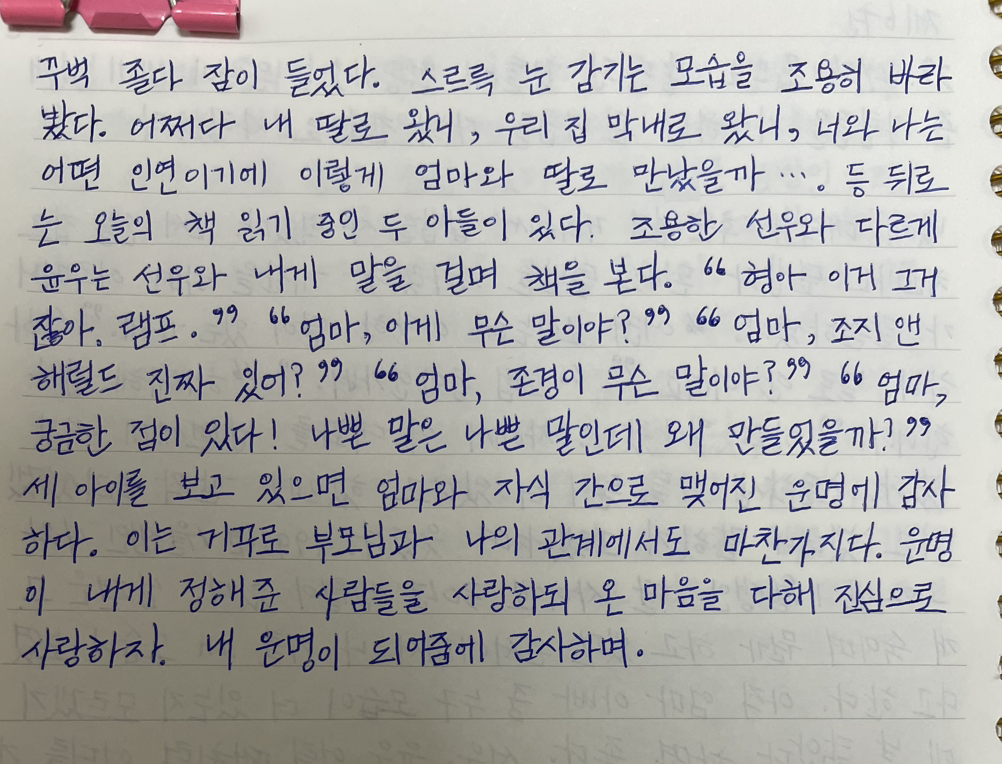 꾸벅 졸다 잠이 들었다. 스르륵 눈 감기는 모습을 조용히 바라
봤다. 어쩌다 내 딸로 왔니, 우리 집 막내로 왔니, 너와 나는
어떤 인연이기에 이렇게 엄마와 딸로 만났을까 …. 등 뒤로
는 오늘의 책 읽기 중인 두 아들이 있다. 조용한 선우와 다르게
윤우는 선우와 내게 말을 걸며 책을 본다. “ 형아 이거 그거
잖아. 램프. ” “ 엄마, 이게 무슨 말이야? ” “ 엄마, 조지 앤
해럴드 진짜 있어? ” “ 엄마, 존경이 무슨 말이야? ” “ 엄마,
궁금한 점이 있다! 나쁜 말은 나쁜 말인데 왜 만들었을까? ”
세 아이를 보고 있으면 엄마와 자식 간으로 맺어진 운명에 감사
하다. 이는 거꾸로 부모님과 나의 관계에서도 마찬가지다. 운명
이 내게 정해준 사람들을 사랑하되 온 마음을 다해 진심으로
사랑하자. 내 운명이 되어줌에 감사하며.